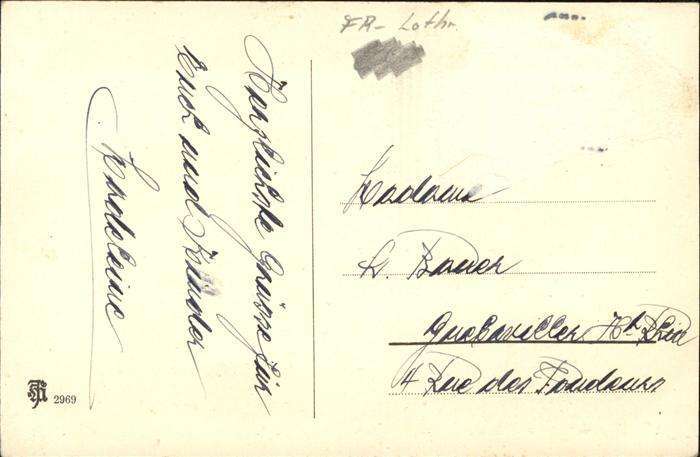 FR- Lothr.
Herzlichste Grüsse für
Euch und Kinder
Madeleine
Madame
L. Bauer
Guebwiller Ht Rhin
4 Rue des Fondeurs
2969